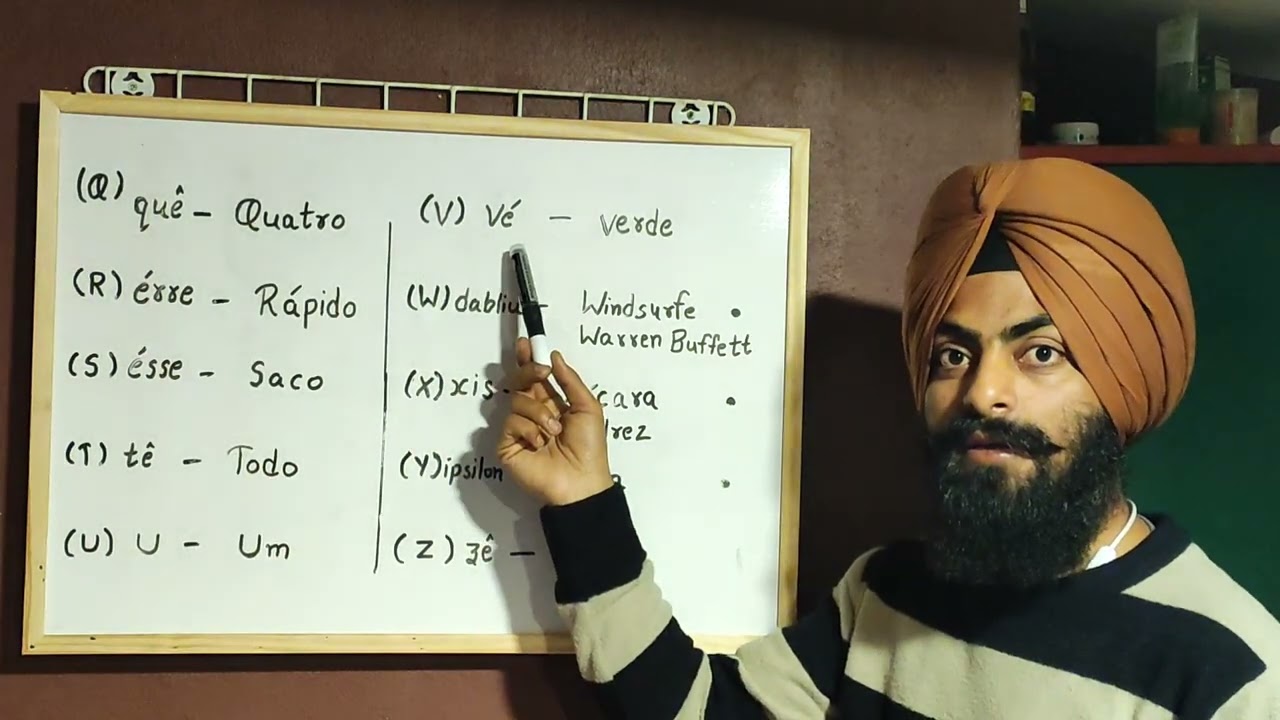 (Q) quê - Quatro
(R) érre - Rápido
(S) ésse - Saco
(T) tê - Todo
(U) U - Um
(V) Vé - verde
(W) dabliu - Windsurfe
Warren Buffett
(X) xis -
(Y) ipsilon
(Z) zê -